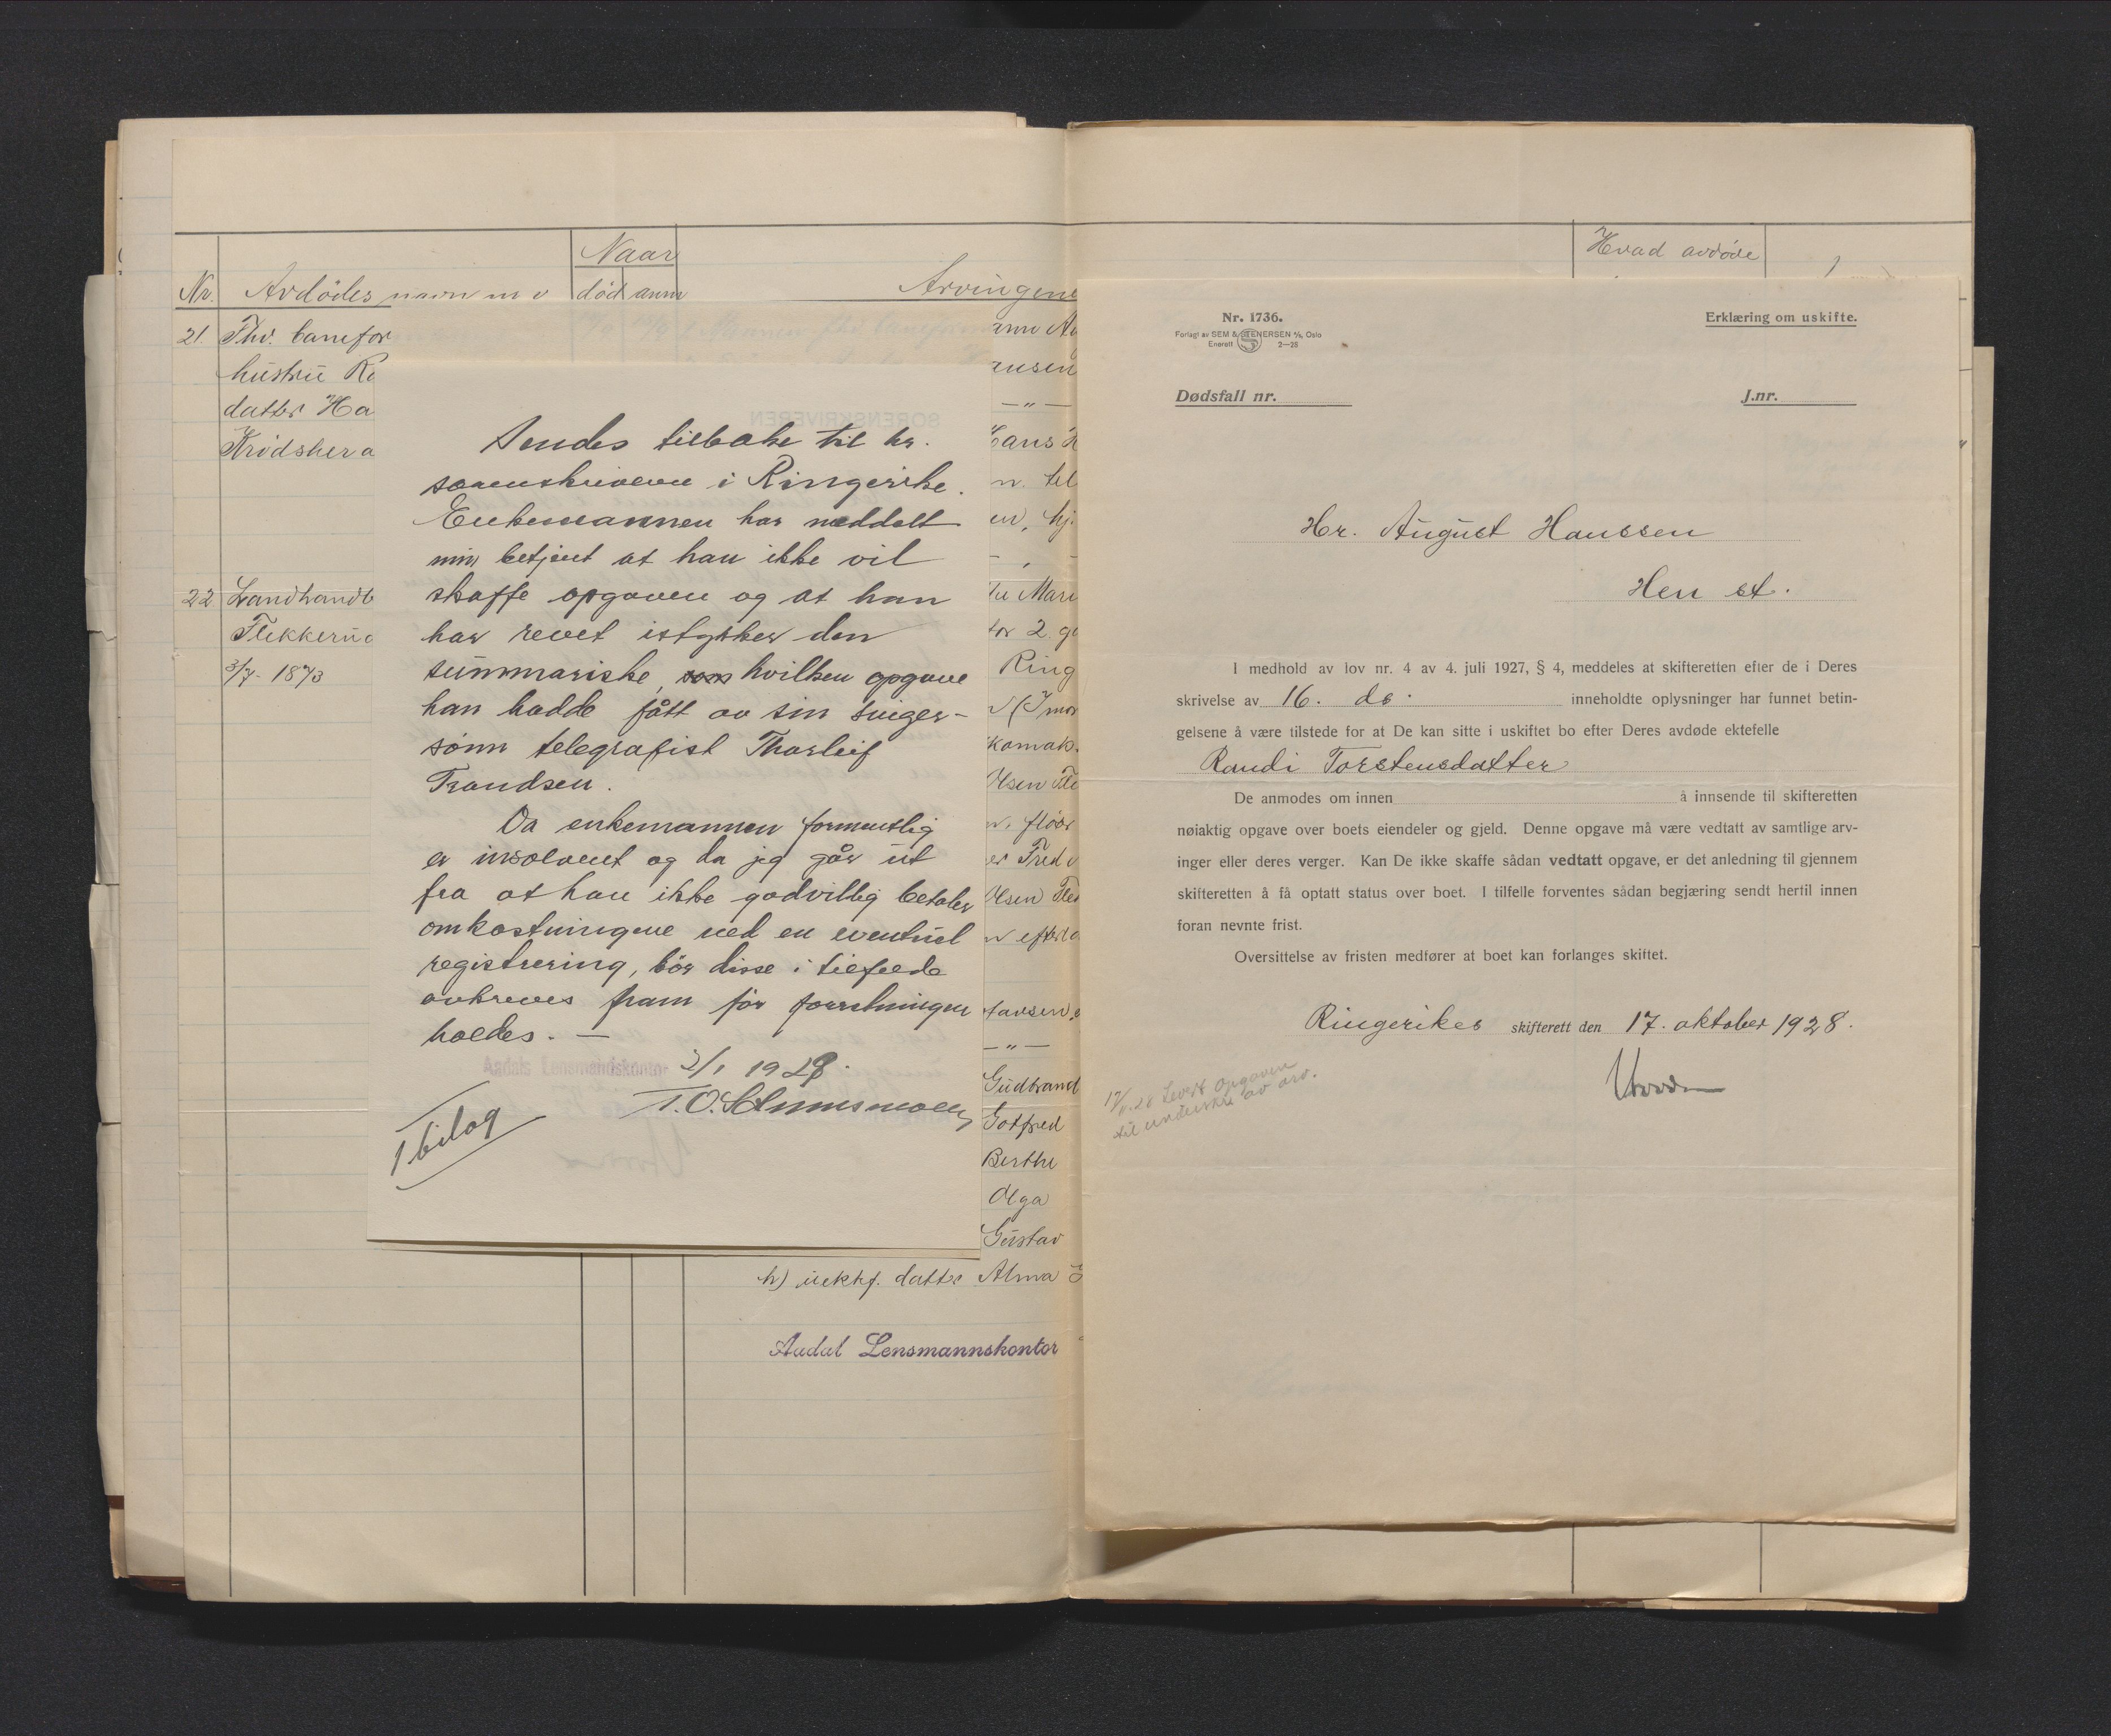 Naar
Nr. Avdödes navn m v död anm Arvingene
21 Fhv. banefor
hustru R
datter Ha
Krödsher a
22 Landhandl
Flekkerud
3/7- 1873
Sendes tilbake til hr.
sorenskriveren i Ringerike.
Enkemannen har meddelt
min betjent at han ikke vil
skaffe opgaven og at han
har revet istykker den
summariske, som hvilken opgave
han hadde fått av sin sviger-
sønn telegrafist Thorleif
Trondsen.
Da enkemannen formentlig
er insolvent og da jeg går ut
fra at han ikke godvillig betaler
omkostningene ved en eventuel
registrering, bör disse i tilfelde
avkreves fram för forretningen
holdes. —
Aadals Lensmandskontor 2/1 1929.
1 bilag
ann
ausen
— " —
Hans H
n. tel
en, hj.
Mari
for 2. g
Ring
komak.
Olsen Fle
n. fløer
er Fred
Olsen Fle
tavsen
— " —
Gudbrand
Gotfred
Berthe
Olga
Gustav
h) uekkf. datter Alma
Aadal Lensmannskontor
Hvad avdøde
Nr. 1736.
Forlagt av SEM & STENERSEN A/S, Oslo
Enerett 2—28
Erklæring om uskifte.
Dødsfall nr.
J.nr.
Hr. August Hanssen
Hen st.
I medhold av lov nr. 4 av 4. juli 1927, § 4, meddeles at skifteretten efter de i Deres
skrivelse av 16. ds. inneholdte oplysninger har funnet betin-
gelsene å være tilstede for at De kan sitte i uskiftet bo efter Deres avdøde ektefelle
Randi Torstensdatter
De anmodes om innen å innsende til skifteretten
nøiaktig opgave over boets eiendeler og gjeld. Denne opgave må være vedtatt av samtlige arv-
inger eller deres verger. Kan De ikke skaffe sådan vedtatt opgave, er det anledning til gjennem
skifteretten å få optatt status over boet. I tilfelle forventes sådan begjæring sendt hertil innen
foran nevnte frist.
Oversittelse av fristen medfører at boet kan forlanges skiftet.
Ringerikes skifterett den 17. oktober 1928.
Levert opgaven
til underskr av arv.